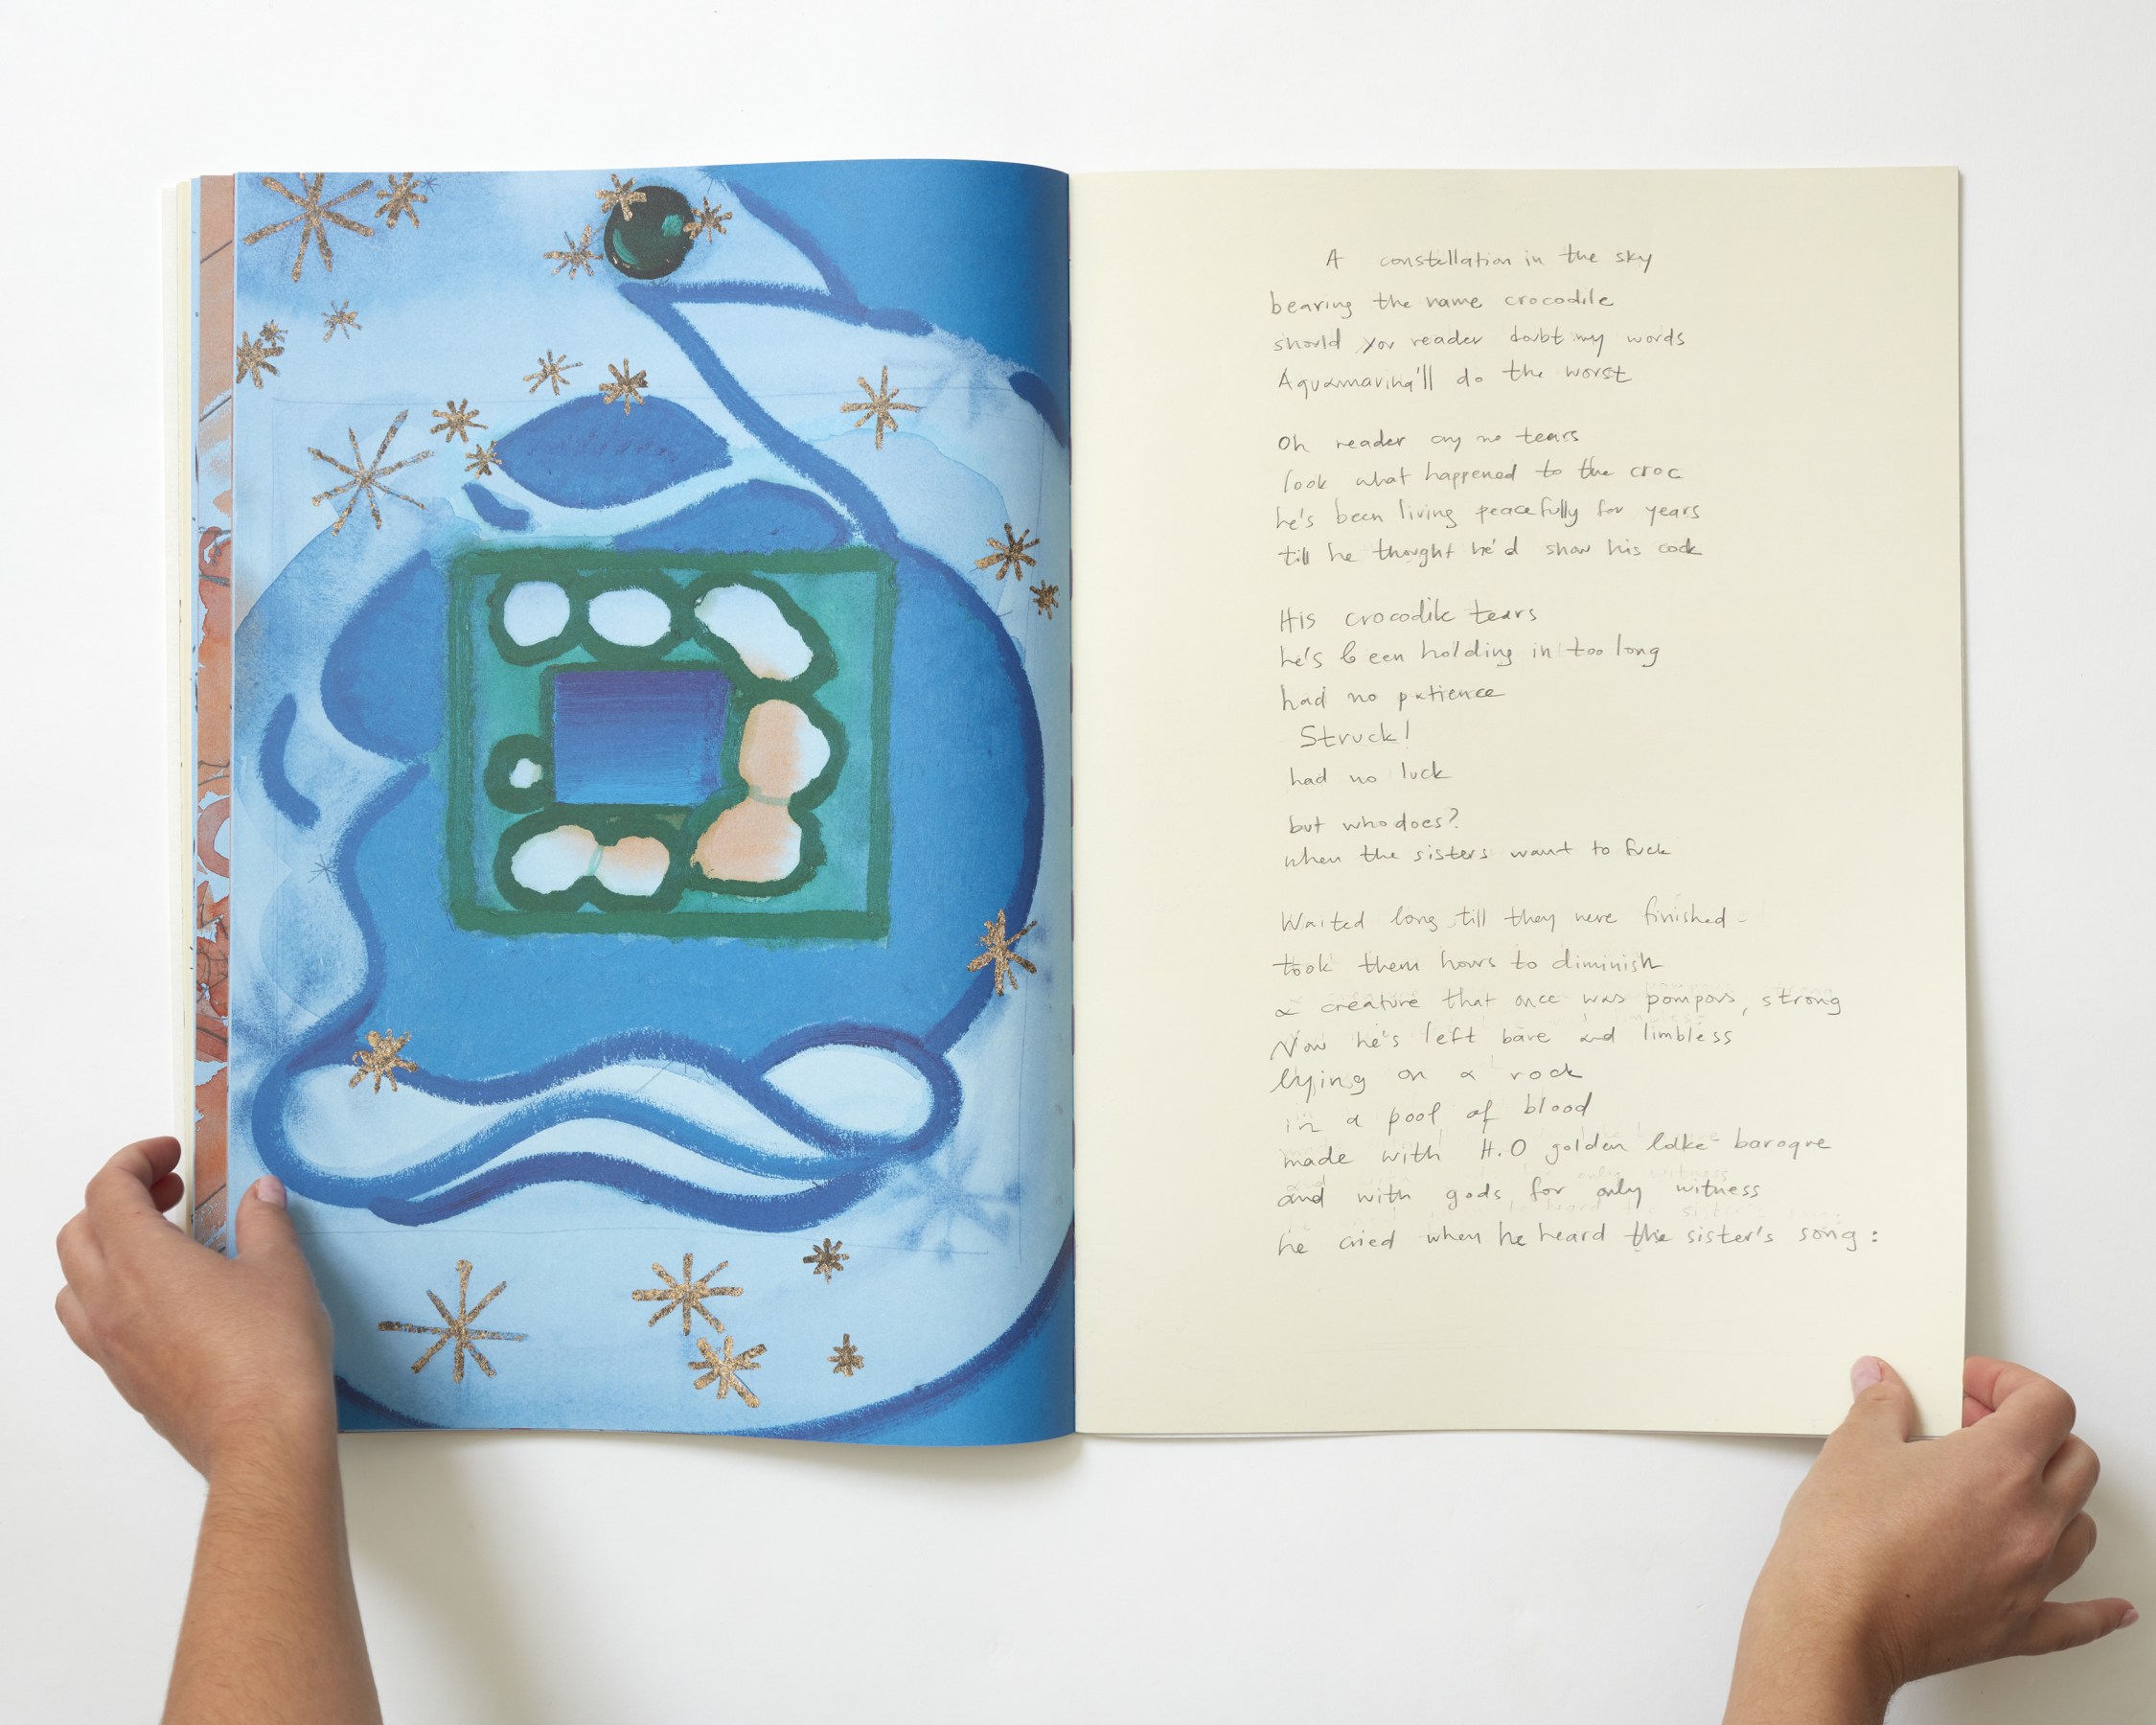 A constellation in the sky
bearing the name crocodile
should you reader doubt my words
Aquamarina'll do the worst
Oh reader cry no tears
look what happened to the croc
he's been living peacefully for years
till he thought he'd show his cock
His crocodile tears
he's been holding in too long
had no patience
Struck!
had no luck
but who does?
when the sisters want to fuck
Waited long till they were finished-
took them hours to diminish
a creature that once was pompous, strong
Now he's left bare and limbless
lying on a rock
in a pool of blood
made with H.O golden lake-baroque
and with gods for only witness
he cried when he heard the sister's song: